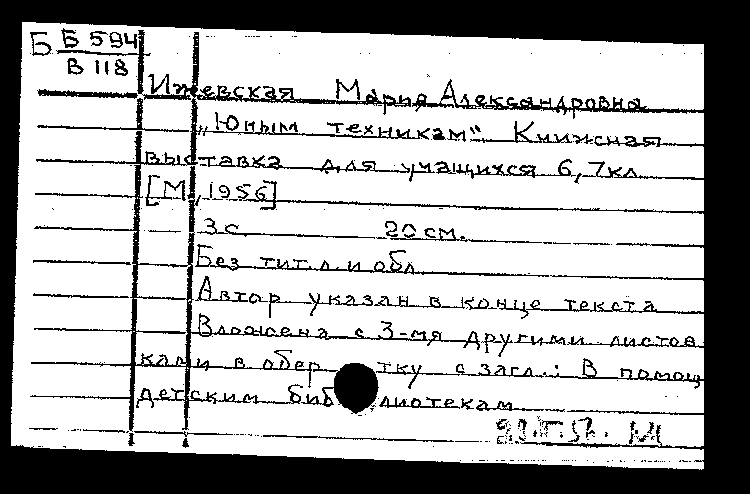 Б Б 594
В 118
Ижевская Мария Александровна
„Юным техникам“. Книжная
выставка для учащихся 6, 7кл
[М, 1956]
3с. 20 см.
Без тит. л и обл.
Автор указан в конце текста
Вложена с 3-мя другими листов
ками в обер тку с загл.: В помощ
детским библиотекам